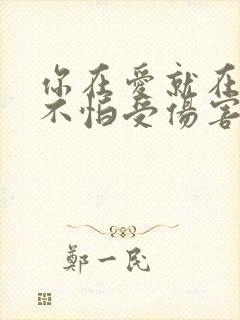 你在愛就在
不怕受傷害
鄭一民